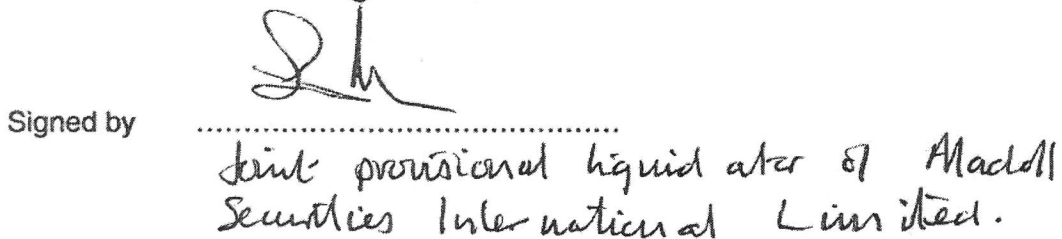 Signed by ..........................................
Joint provisional liquidator of Madoff
Securities International Limited.